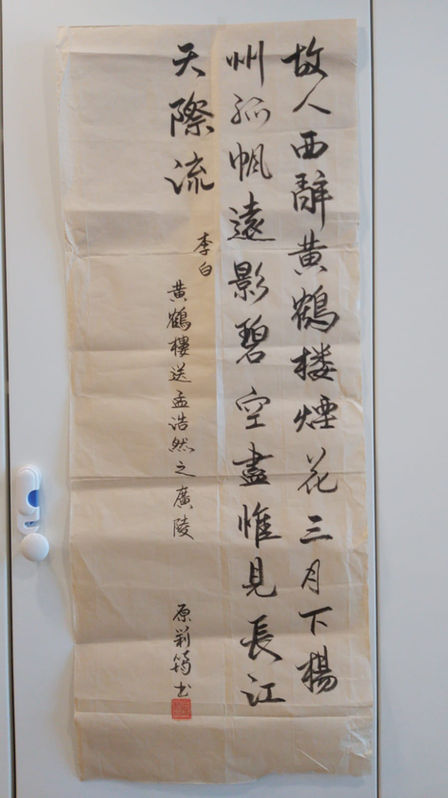 故人西辭黄鶴楼煙花三月下楊
州孤帆遠影碧空盡惟見長江
天際流
李白
黄鶴樓送孟浩然之廣陵
原莉筠书